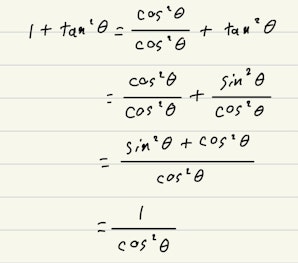 1 + tan²θ = cos²θ/cos²θ + tan²θ
= cos²θ/cos²θ + sin²θ/cos²θ
= (sin²θ + cos²θ)/cos²θ
= 1/cos²θ